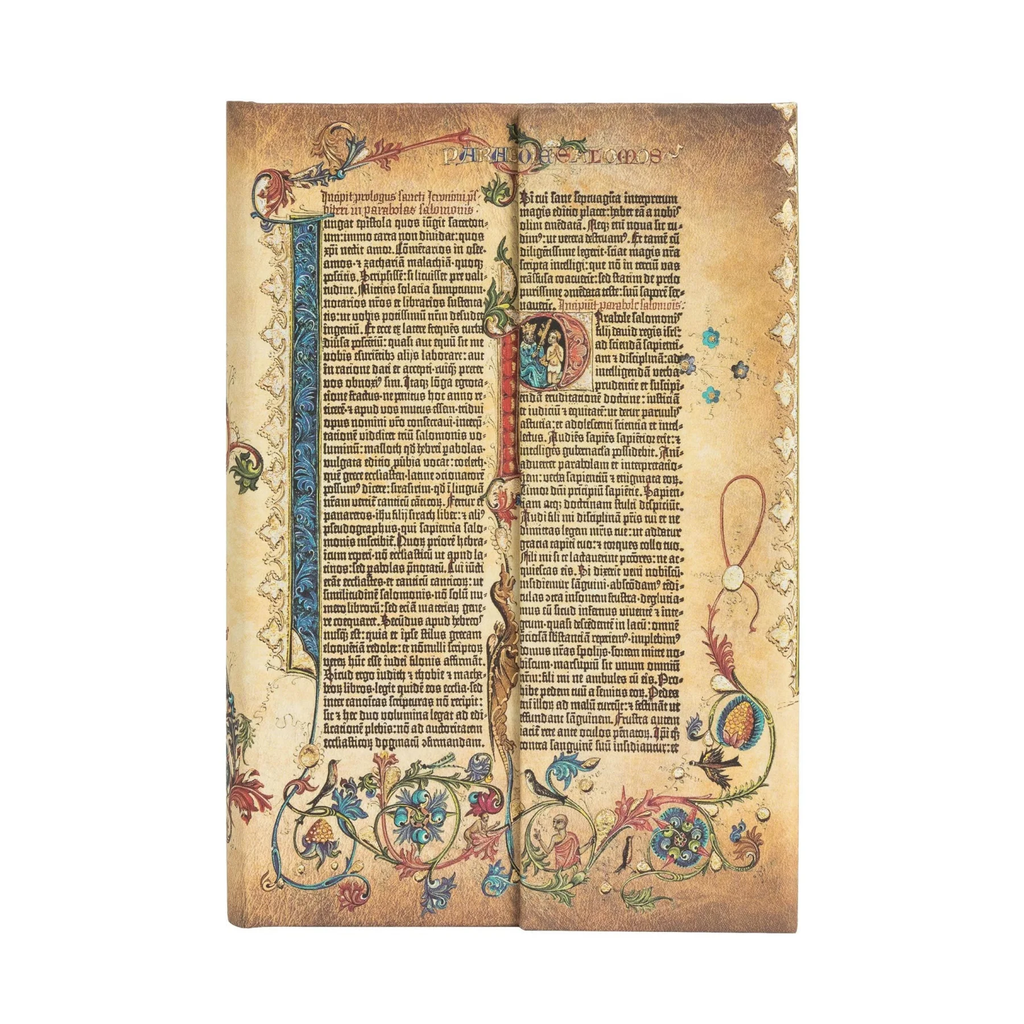 PARABOLE SALOMOIS
Incipit prologus sancti Jeronimi p̄s=
biteri in parabolas salomonis.
Iungat epistola quos iūgit sacerdoti=
um: immo carta non dividat: quos
xp̄i nectit amor. Cōmētarios in osee.
amos. ⁊ zachariā malachiā. quoqꝫ
poscitis. Scripsissē: si licuisset pre vali=
tudine. Mittitis solacia sumptuum.
notarios nr̄os et librarios sustenta=
tis: ut vobis potissimū nr̄m desudet
ingeniū. Et ecce ex latere frequēs turba
diūsa poscētiū: quasi aut equū sit me
vobis esuriētibꝰ alijs laborare: aut
in ratione dati et accepti. cuiqꝫ preter
vos obnoxiꝰ sim. Itaqꝫ lōga egrota=
tione fractus. ne penitus hoc anno re=
ticerē ⁊ apud vos mutus essem. tridui
opus nomini vr̄o consecraui. interp̄=
tationē videlicet triū salomonis vo=
luminū: masloth qd̄ hebrei pabolas.
vulgata editio p̄ubia vocat: coeleth.
que grece ecclesiasten. latine ɔcionatorē
possumꝰ dicere: sirasirim. qd̄ ī linguā
nr̄am vertit̄ canticū cāticoꝝ. Fertur et
panaretos. ihū filij sirach liber: ⁊ aliꝰ
pseudographus. qui sapientia salo=
monis inscribit̄. Quoꝝ priorē hebra=
icum reperi. nō ecclesiasticū ut apud la=
tinos: sed pabolas p̄notatū. Cui iūcti
erāt ecclesiastes. et canticū canticoꝝ: ut
similitudinē salomonis. nō solū nu=
mero librorū: sed eciā materiaꝝ gene=
re coequaret. Secūdus apud hebreos
nusqꝫ est: quia et ip̄se stilus grecam
eloquētiā redolet: et nōnulli scriptoꝝ
veteꝝ hūc esse iudei filonis affirmāt.
Sicud ergo iudith ⁊ thobie ⁊ macha=
beoꝝ libros. legit quidē eos ecclīa. sed
inter canonicas scripturas nō recipit:
sic ⁊ hec duo volumina legat ad edi=
ficationē plebis: nō ad auctoritatem
ecclesiasticoꝝ dogmatū ɔfirmandam.
Si cui sane septuaginta interpretum
magis editio placet: habet eā a nobis
olim emēdatā. Neqꝫ em̄ noua sic cu=
dimꝰ: ut vetera destruamꝰ. Et tamē cū
diligētissime legerit. sciat magis nr̄a
scripta intelligi: que nō in terciū vas
trāsfusa coacuerīt: sed statim de prelo
purissime ɔmēdata teste: suū saporē ser=
uauerīt. Incipiūt parabole salomois:
Parabole salomonis
filij dauid regis isrl̄:
ad sciendā sapienti=
am ⁊ disciplinā: ad
intelligendā verba
prudentie et suscipi=
endā eruditatōnē doctrine: iusticiā
et iudiciū ⁊ equitatē: ut detur paruulis
astutia: et adolescenti scientia et intel=
lectus. Audiēs sapiēs sapiētior erit: ⁊
intelligēs gubernacula possidebit. Ani=
aduertet parabolam et interpretatio=
nem: verba sapientiū ⁊ enigmata eoꝝ.
Timor dn̄i principiū sapiētie. Sapien=
tiam atqꝫ doctrinam stulti despiciūt.
Audi fili mi disciplinā pr̄is tui et ne
dimittas legem mr̄is tue: ut addatur
gracia capiti tuo: ⁊ torques collo tuo.
Fili mi si te lactauerīt pctōres: ne ac=
quiescas eis. Si dixerīt veni nobiscū.
insidiemur sāguini. abscōdamꝰ tēdi=
culas ɔtra insontem frustra. deglutia=
mus eū sicud infernus viuentē ⁊ inte=
grum. quasi descēdentē in lacū: omnē
p̄ciosā sb̄stantiā repriemꝰ. implebimꝰ
domus nr̄as spolijs. sortem mitte no=
biscum. marsupiū sit unum omniū
nr̄m: fili mi ne ambules cū eis. Pro=
hibe pedem tuū a semitis eoꝝ. Pedes
em̄ illoꝝ ad malū currūt: ⁊ festināt ut
effundant sāguinem. Frustra autem
iacit̄ rete ante oculos pēnatoꝝ. Ip̄i qꝫ
contra sanguinē suū insidiantur: et